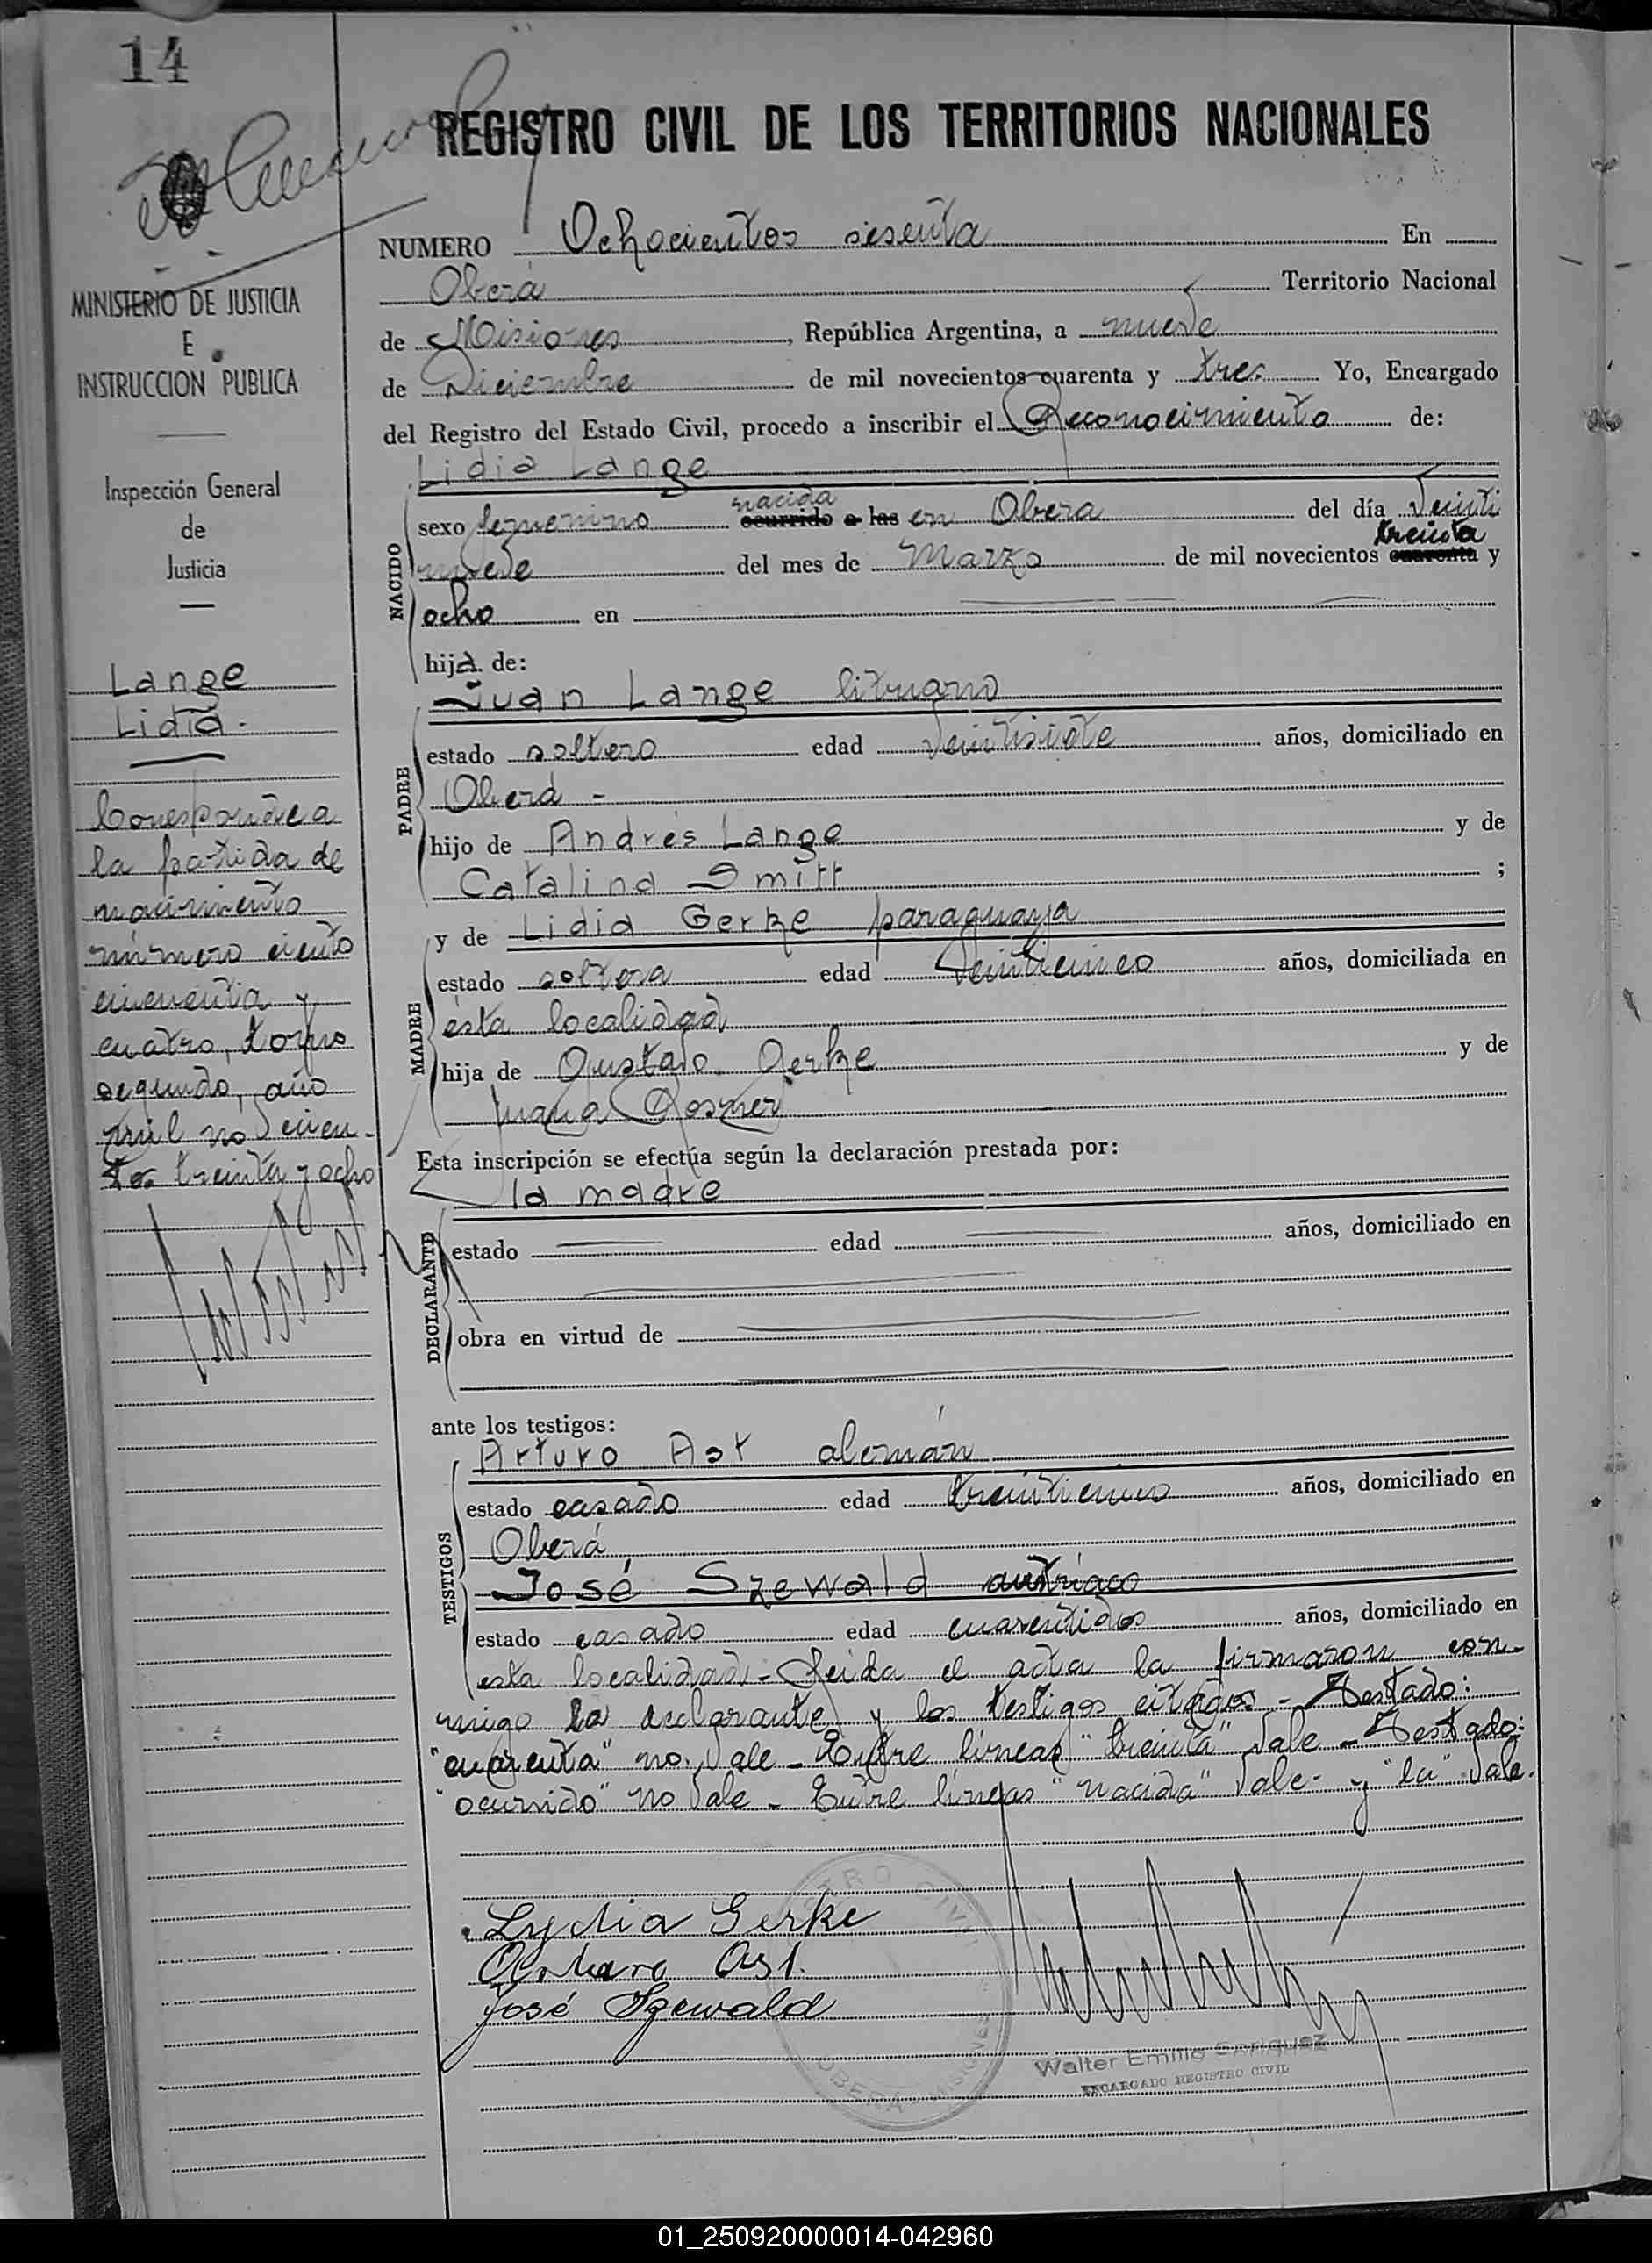 14
REGISTRO CIVIL DE LOS TERRITORIOS NACIONALES
MINISTERIO DE JUSTICIA
E
INSTRUCCION PUBLICA
Inspección General
de
Justicia
Lange
Lidia.-
Corresponde a
la partida de
nacimiento
número ciento
cincuenta y
cuatro, tomo
segundo, año
mil novecien-
tos treinta y ocho
NUMERO Ochocientos sesenta En
Oberá Territorio Nacional
de Misiones, República Argentina, a nueve
de Diciembre de mil novecientos cuarenta y tres Yo, Encargado
del Registro del Estado Civil, procedo a inscribir el Reconocimiento de:
Lidia Lange
NACIDO
nacida
sexo femenino ocurrido a las en Obera del día Veinti
treinta
nueve del mes de Marzo de mil novecientos cuarenta y
ocho en
hija de:
Juan Lange lituano
PADRE
estado soltero edad veintisiete años, domiciliado en
Oberá -
hijo de Andrés Lange y de
Catalina Smitt ;
y de Lidia Gerke paraguaya
MADRE
estado soltera edad Veinticinco años, domiciliada en
ésta localidad
hija de Gustavo Gerke y de
Juana Rosner
Esta inscripción se efectúa según la declaración prestada por:
la madre
DECLARANTE
estado edad años, domiciliado en
obra en virtud de
ante los testigos:
Arturo Ast alemán
TESTIGOS
estado casado edad treinticinco años, domiciliado en
Oberá
José Szewald austríaco
estado casado edad cuarentidos años, domiciliado en
esta localidad.- Leida el acta la firmaron con-
migo la declarante y los testigos citados - Testado:
"cuarenta" no vale - Entre líneas "treinta" vale - Testado:
"ocurrido" no vale - Entre líneas "nacida" vale - y "la" vale.
Lydia Gerke
Arturo Ast.
José Szewald
Walter Emilio Enriquez
ENCARGADO REGISTRO CIVIL
OBERA MISIONES
01_250920000014-042960